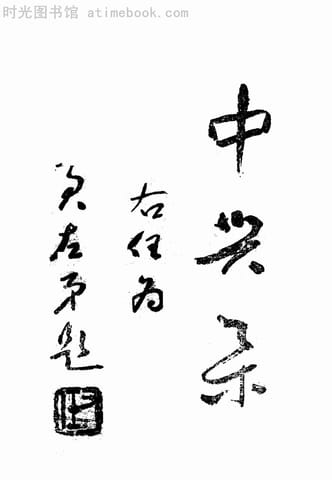 时光图书馆 atimebook.com
中兴乐
右任为
弟题